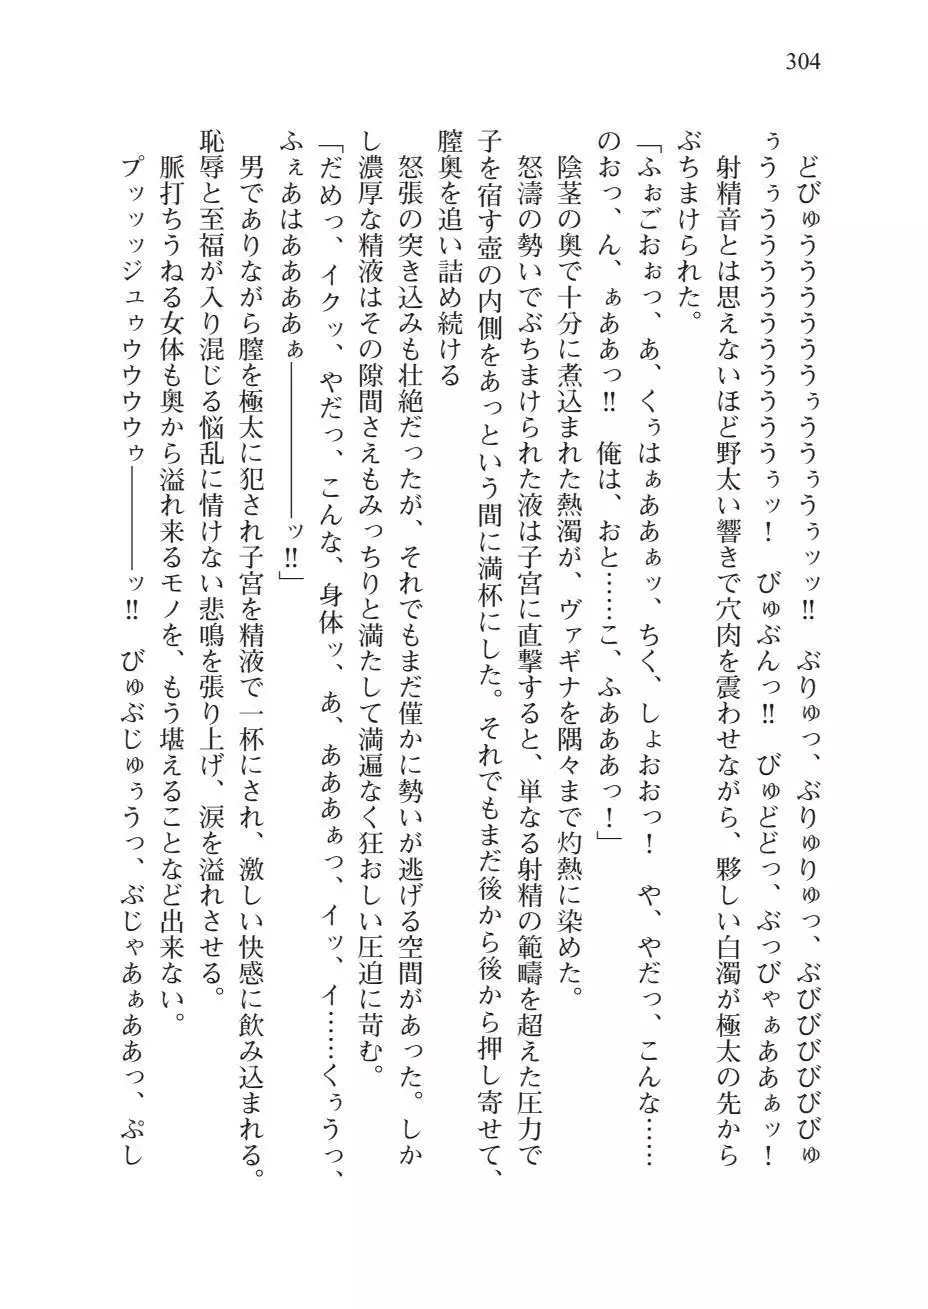 304
どびゅうううううぅううぅうぅッッ!!　ぶりゅっ、ぶりゅりゅっ、ぶびびびびびびゅ
ぅうぅううううううううぅッ！　びゅぶんっ!!　びゅどどっ、ぶっびゃぁああぁッ！
射精音とは思えないほど野太い響きで穴肉を震わせながら、夥しい白濁が極太の先から
ぶちまけられた。
「ふぉごおぉっ、あ、くぅはぁああぁッ、ちく、しょおおっ！　や、やだっ、こんな……
のおっ、ん、ぁああっ!!　俺は、おと……こ、ふあああっ！」
陰茎の奥で十分に煮込まれた熱濁が、ヴァギナを隅々まで灼熱に染めた。
怒濤の勢いでぶちまけられた液は子宮に直撃すると、単なる射精の範疇を超えた圧力で
子を宿す壺の内側をあっという間に満杯にした。それでもまだ後から後から押し寄せて、
膣奥を追い詰め続ける
怒張の突き込みも壮絶だったが、それでもまだ僅かに勢いが逃げる空間があった。しか
し濃厚な精液はその隙間さえもみっちりと満たして満遍なく狂おしい圧迫に苛む。
「だめっ、イクッ、やだっ、こんな、身体ッ、あ、あああぁっ、イッ、イ……くぅうっ、
ふぇあはああああぁ――――――ッ!!」
男でありながら膣を極太に犯され子宮を精液で一杯にされ、激しい快感に飲み込まれる。
恥辱と至福が入り混じる悩乱に情けない悲鳴を張り上げ、涙を溢れさせる。
脈打ちうねる女体も奥から溢れ来るモノを、もう堪えることなど出来ない。
プッッッジュゥウウウウゥ――――ッ!!　びゅぶじゅぅうっ、ぶじゃあぁああっ、ぷし